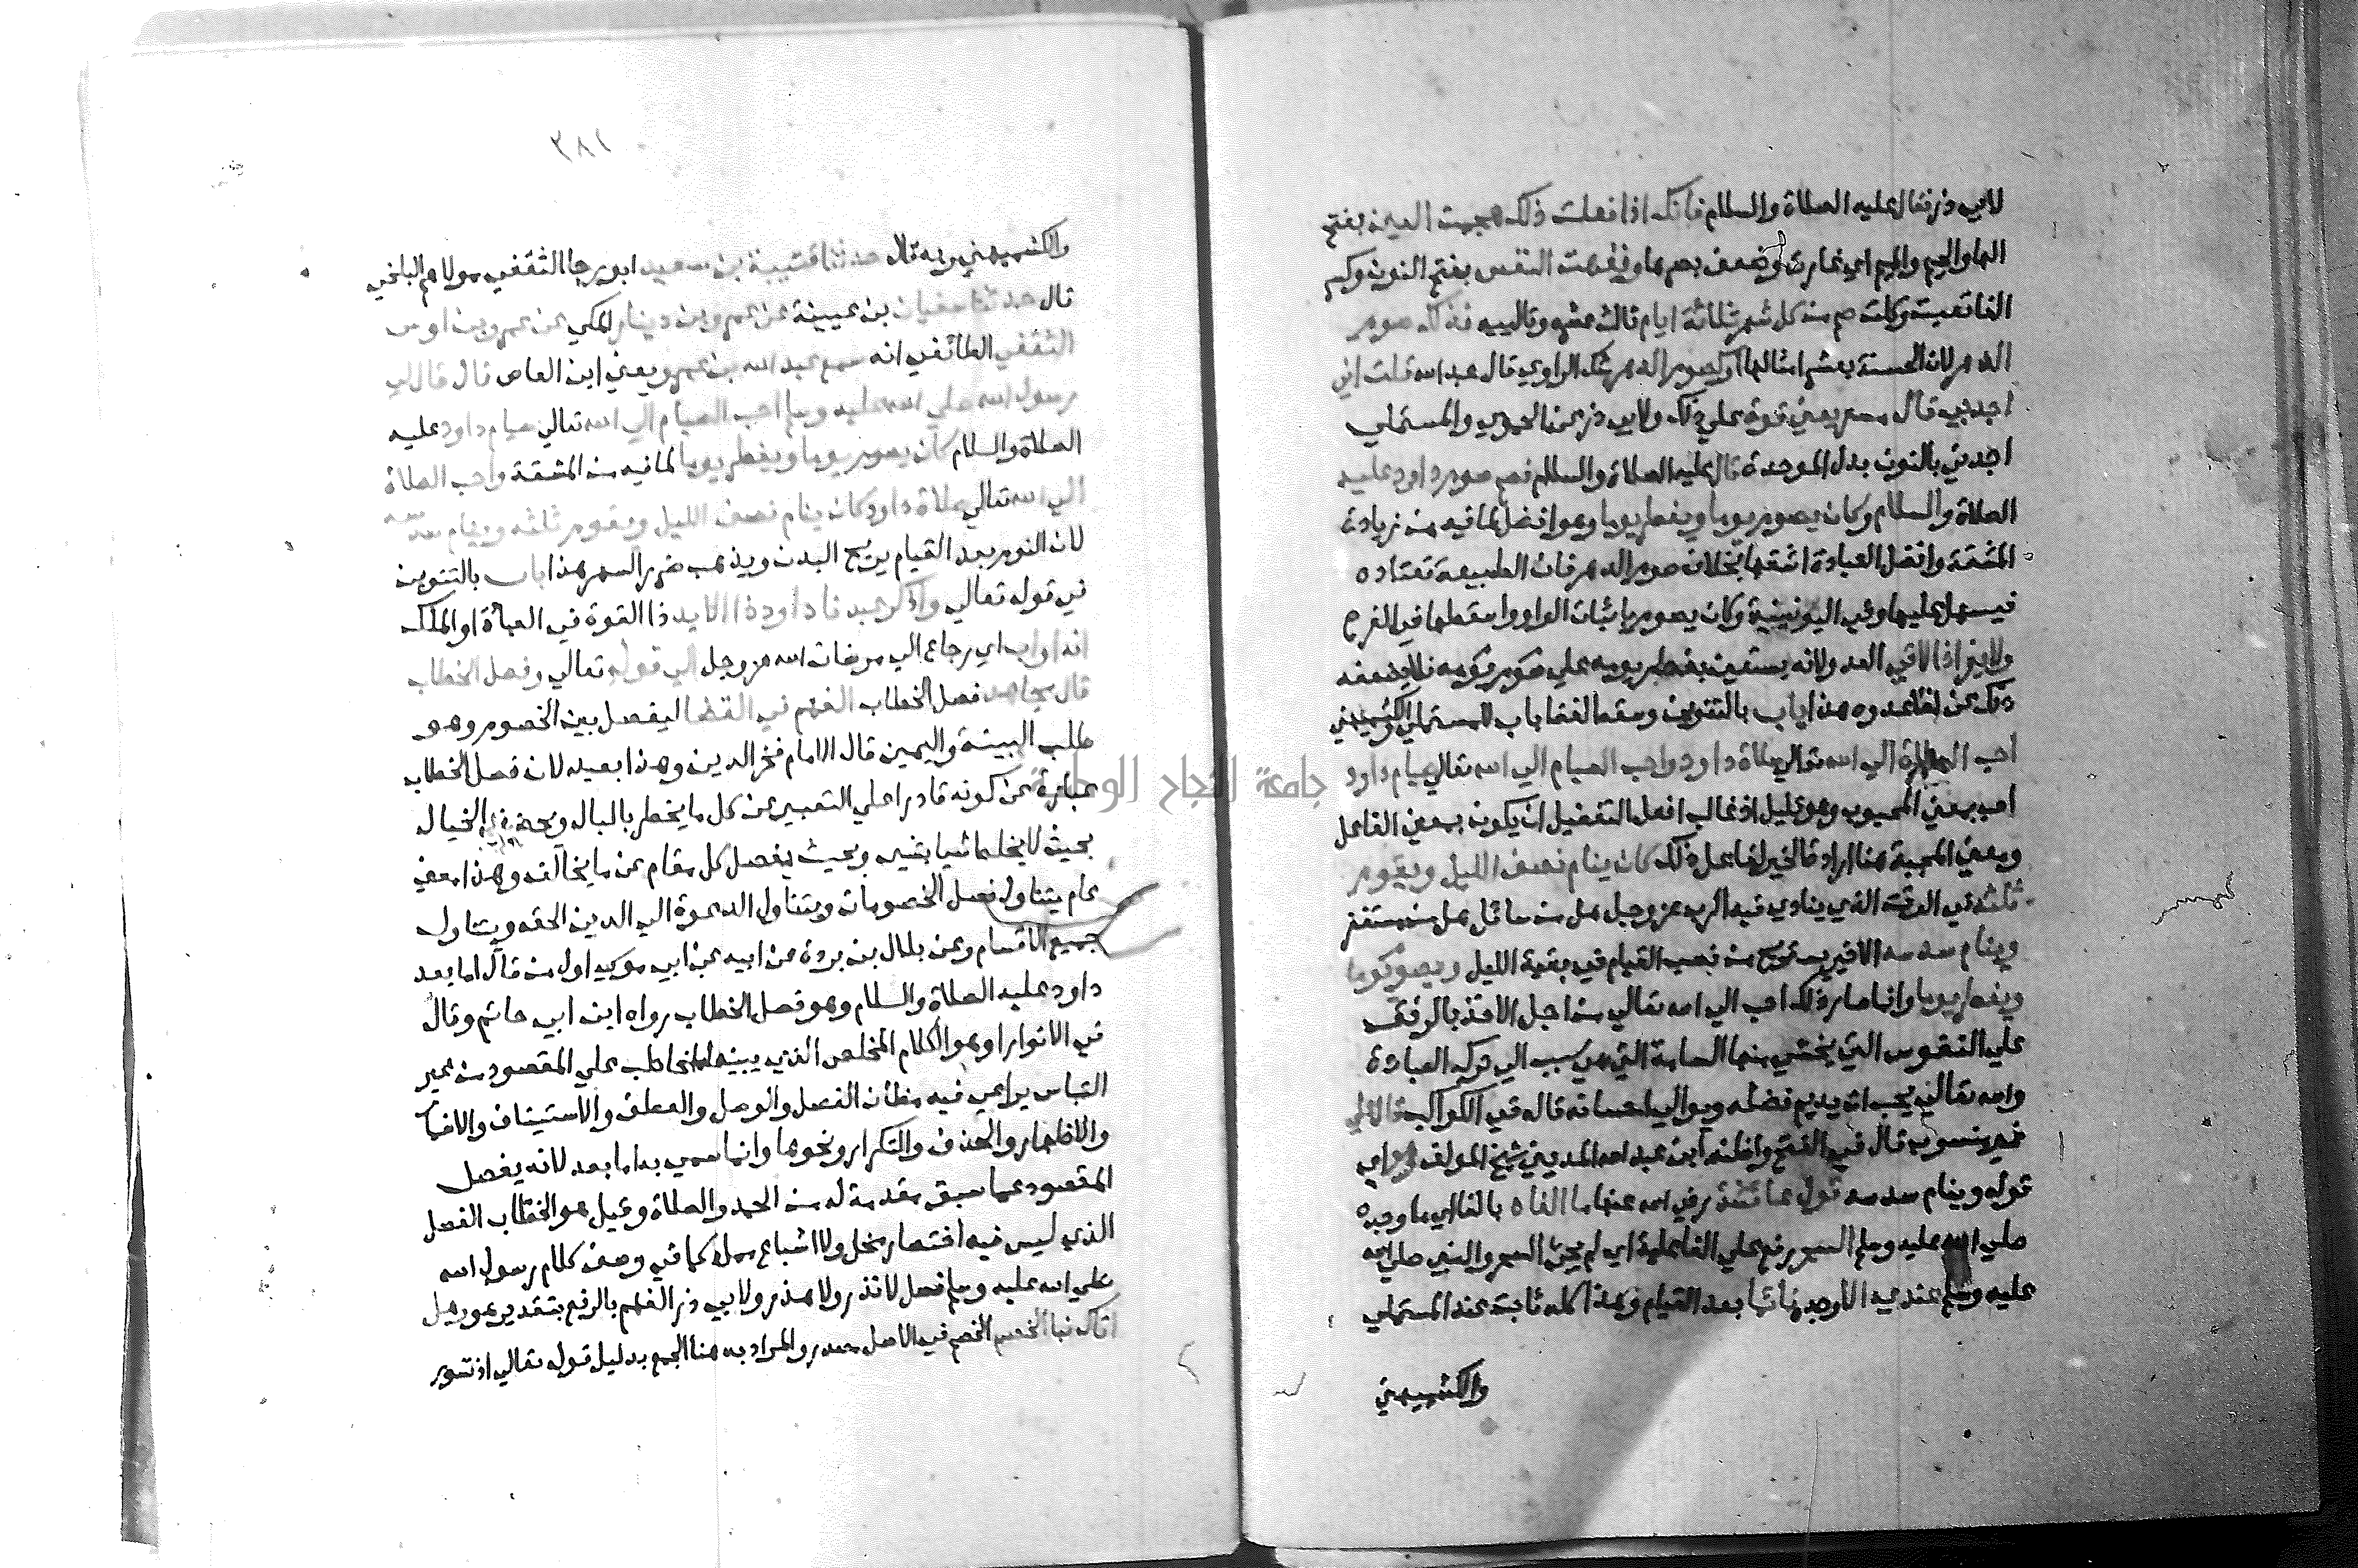 لابي ذر فقال عليه الصلاة والسلام فانك اذا فعلت ذلك هجمت العين بفتح
الها والجيم والميم اي غارت وضعف بصرها ونفهت النفس بفتح النون وكسر
الفا تعبت وكلت صم من كل شهر ثلاثة ايام ثالث عشره وتالييه فذلك صوم
الدهر لان الحسنة بعشر امثالها او كصوم الدهر شك الراوي قال عبد الله قلت اني
اجد بي قال مسعر يعني قوة علي ذلك ولابي ذر عن الحموي والمستملي
اجدني بالنون بدل الموحدة قال عليه الصلاة والسلام فصم صوم داود عليه
الصلاة والسلام وكان يصوم يوما ويفطر يوما وهو افضل لما فيه من زيادة
المشقة وافضل العبادة اشقها بخلاف صوم الدهر فان الطبيعة تعتاده
فيسهل عليها وفي اليونينية وكان يصوم باثبات الواو واسقطها في الفرع
ولا يفر اذا لاقي العدو لانه يستعين بفطر يومه علي صوم يومه فلا يضعفه
ذلك عن لقا عدوه هذا باب بالتنوين وسقط لفظ باب للمستملي والكشميهني
احب الصلاة الي الله تعالي صلاة داود واحب الصيام الي الله تعالي صيام داود
احب بمعني المحبوب وهو قليل اذ غالب افعل التفضيل ان يكون بمعني الفاعل
ومعني المحبة هنا ارادة الخير لفاعل ذلك كان ينام نصف الليل ويقوم
ثلثه في الوقت الذي ينادي فيه الرب عز وجل هل من سائل هل من مستغفر
وينام سدسه الاخير يستريح من نصب القيام في بقية الليل ويصوم يوما
ويفطر يوما وانما صار ذلك احب الي الله تعالي من اجل الاخذ بالرفق
علي النفوس التي يخشي منها السامة التي هي سبب الي ترك العبادة
والله تعالي يحب ان يديم فضله ويوالي احسانه قاله في الكواكب قال علي
غير منسوب قال في الفتح واظنه ابن عبد الله المديني شيخ المولف وهو اي
قوله وينام سدسه قول عائشة رضي الله عنها ما الفاه بالفا اي ما وجده
صلي الله عليه وسلم السحر رفع علي الفاعلية اي لم يجئ السحر والنبي صلي الله
عليه وسلم عندي الا وجده نائما بعد القيام وهذا كله ثابت عند المستملي
والكشميهني
٣٨١
والكشميهني وبه قال حدثنا قتيبة بن سعيد ابو رجا الثقفي مولاهم البلخي
قال حدثنا سفيان بن عيينة عن عمرو بن دينار المكي عن عمرو بن اوس
الثقفي الطائفي انه سمع عبد الله بن عمرو يعني ابن العاص قال قال لي
رسول الله صلي الله عليه وسلم احب الصيام الي الله تعالي صيام داود عليه
الصلاة والسلام كان يصوم يوما ويفطر يوما لما فيه من المشقة واحب الصلاة
الي الله تعالي صلاة داود كان ينام نصف الليل ويقوم ثلثه وينام سدسه
لان النوم بعد القيام يريح البدن ويذهب ضرر السهر هذا باب بالتنوين
في قوله تعالي واذكر عبدنا داود ذا الايد ذا القوة في العبادة او الملك
انه اواب اي رجاع الي مرضات الله عز وجل الي قوله تعالي وفصل الخطاب
قال مجاهد فصل الخطاب الفهم في القضا ليفصل بين الخصوم وهو
طلب البينة واليمين قال الامام فخر الدين وهذا بعيد لان فصل الخطاب
عبارة عن كونه قادرا علي التعبير عن كل ما يخطر بالبال ويحضر في الخيال
بحيث لا يخلط شيا بشي وبحيث يفصل كل مقام عن ما يخالفه وهذا معني
عام يتناول فصل الخصومات ويتناول الدعوة الي الدين الحق ويتناول
جميع الاقسام وعن بلال بن بردة عن ابيه عن ابي موسي اول من قال اما بعد
داود عليه الصلاة والسلام وهو فصل الخطاب رواه ابن ابي حاتم وقال
في الانوار او هو الكلام المخلص الذي ينبه المخاطب علي المقصود من غير
التباس يراعي فيه مظان الفصل والوصل والعطف والاستيناف والاضمار
والاظهار والحذف والتكرار ونحوها وانما سمي به اما بعد لانه يفصل
المقصود عما سبق مقدمة له من الحمد والصلاة وقيل هو الخطاب الفصل
الذي ليس فيه اختصار مخل ولا اشباع ممل كما في وصف كلام رسول الله
صلي الله عليه وسلم فصل لا نذر ولا هذر ولابي ذر الفهم بالرفع بتقدير هو وهل
اتاك نبا الخصم الخصم في الاصل مصدر والمراد به هنا الجمع بدليل قوله تعالي اذ تسور
جامعة النجاح الوطنية